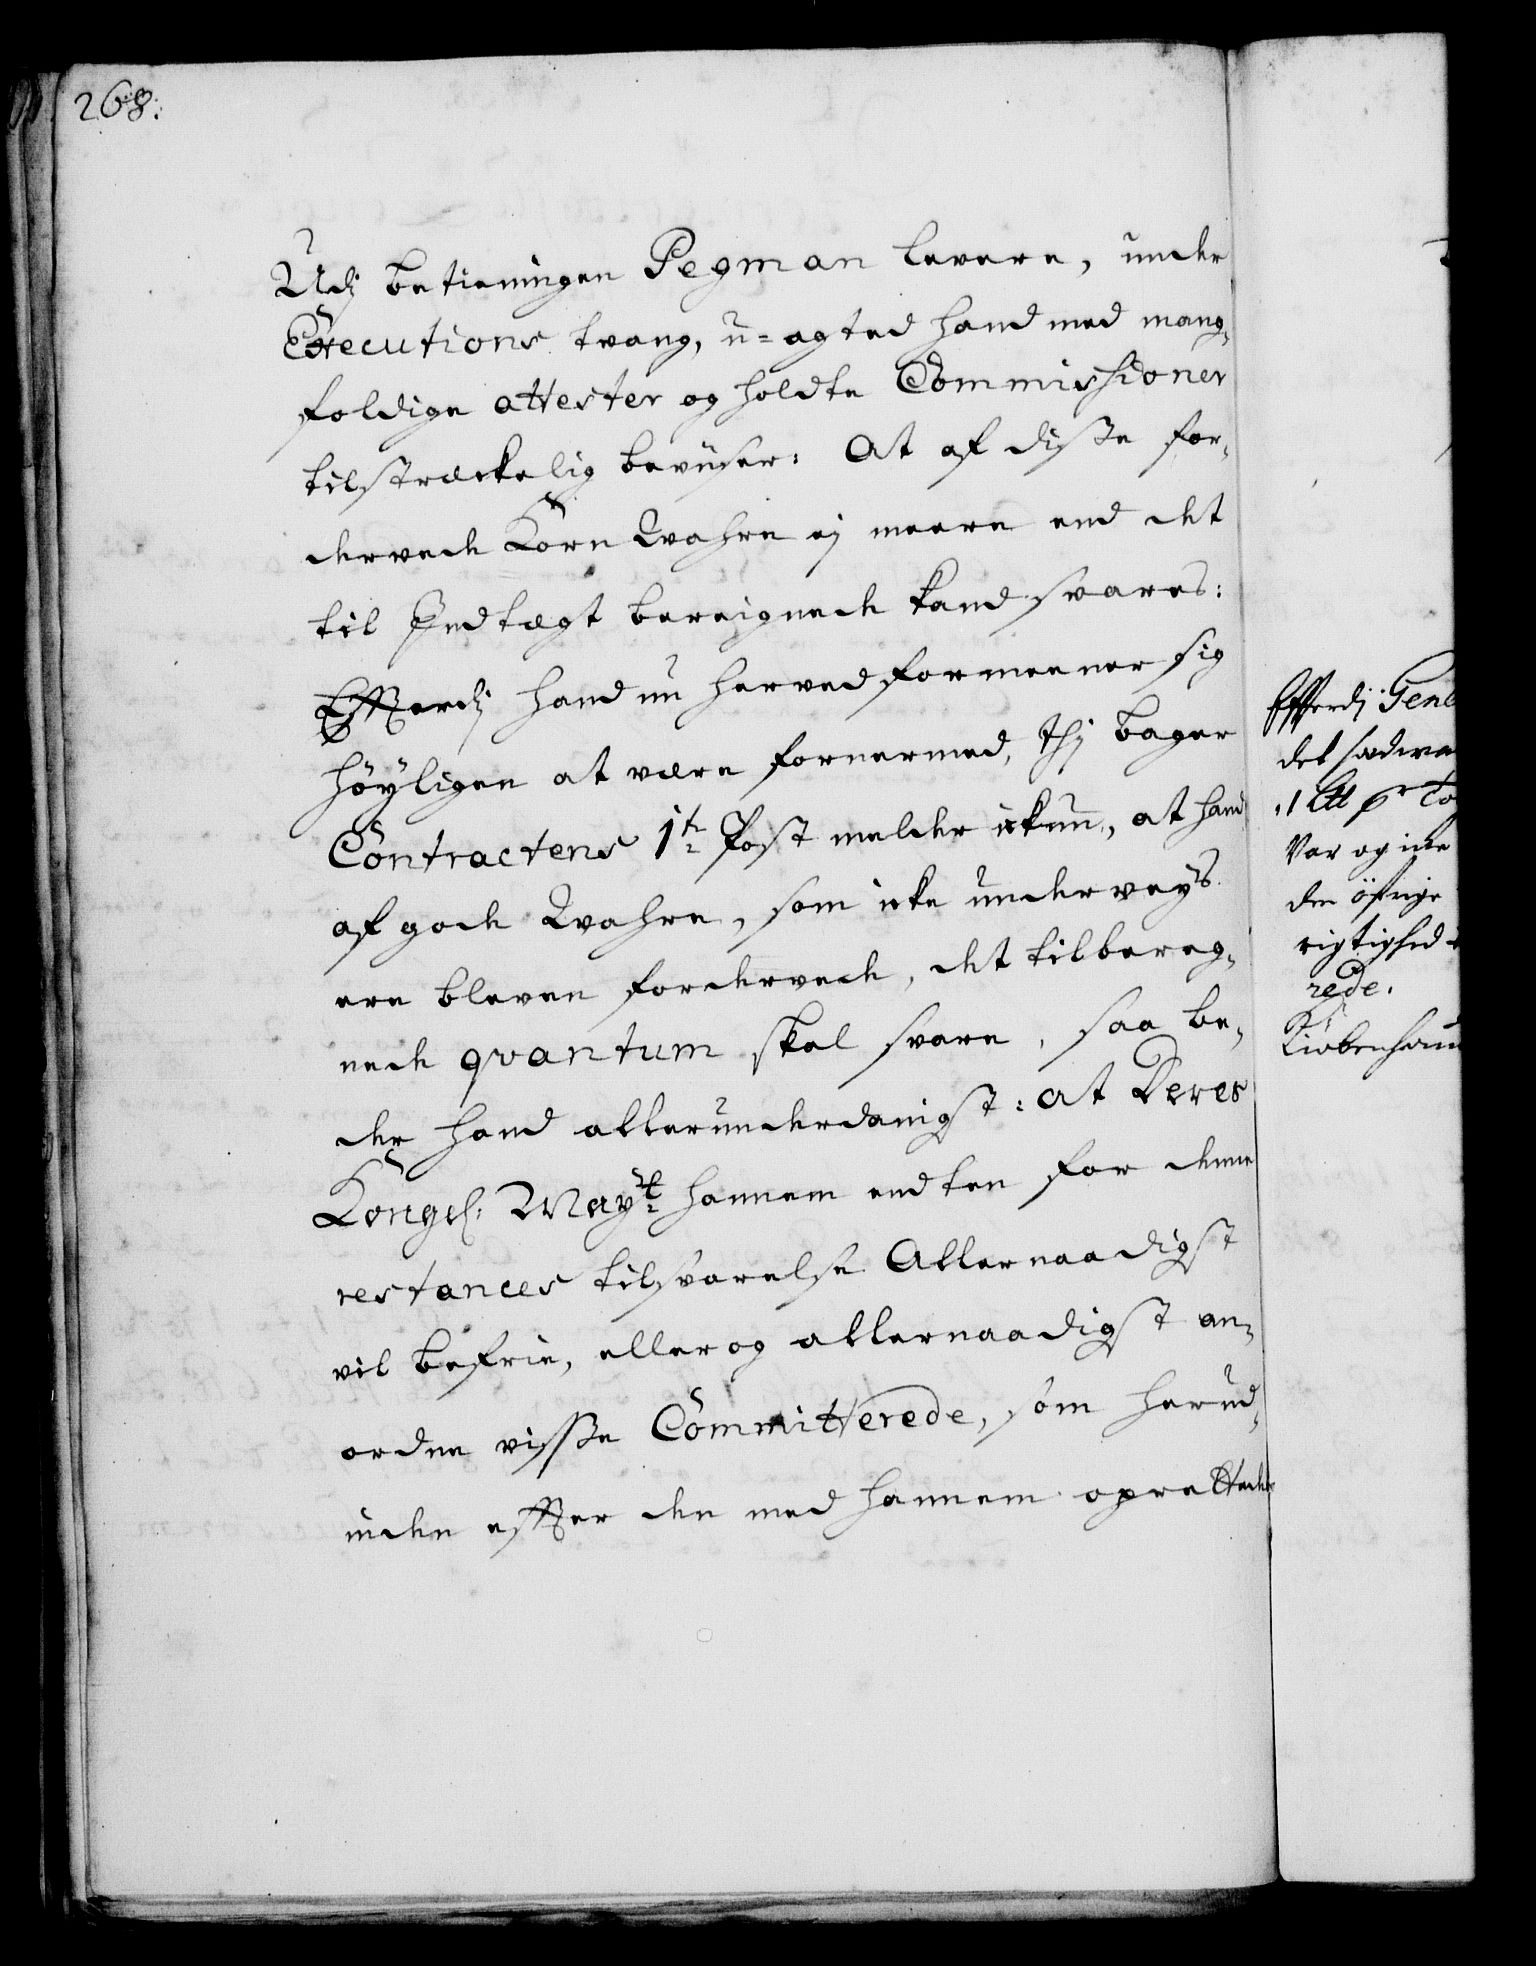 268.
Udj betieningen Pegman levere, under
Executions tvang, u-agted hand med mang-
foldige attester og holdte Commissioner
tilstrækelig beviiser: At af disse for-
dervede Korn Wahre ej meere end det
til Indtægt bereignede kand svares:
Effterdj hand nu herved formeener sig
höÿligen at være fornermed, thj bager
Contractens 1te Post melder ickun, at hand
af gode Wahre, som icke underveÿs
ere bleven fordervede, det tilbereg-
nede qvantum skal svare, saa be-
der hand allerunderdanigst: at Deres
Kongel: Maÿt hannem endten for denne
restances tilsvarelse Allernaadigst
vil befrie, eller og allernaadigst an-
ordne visse Committerede, som herud-
inden effter den med hannem oprettede
Efftterdj Gene
det sædva
1 lb 6r To
Var og icke
den öfrige
rigtighed
rede.
Kiöbenhaun